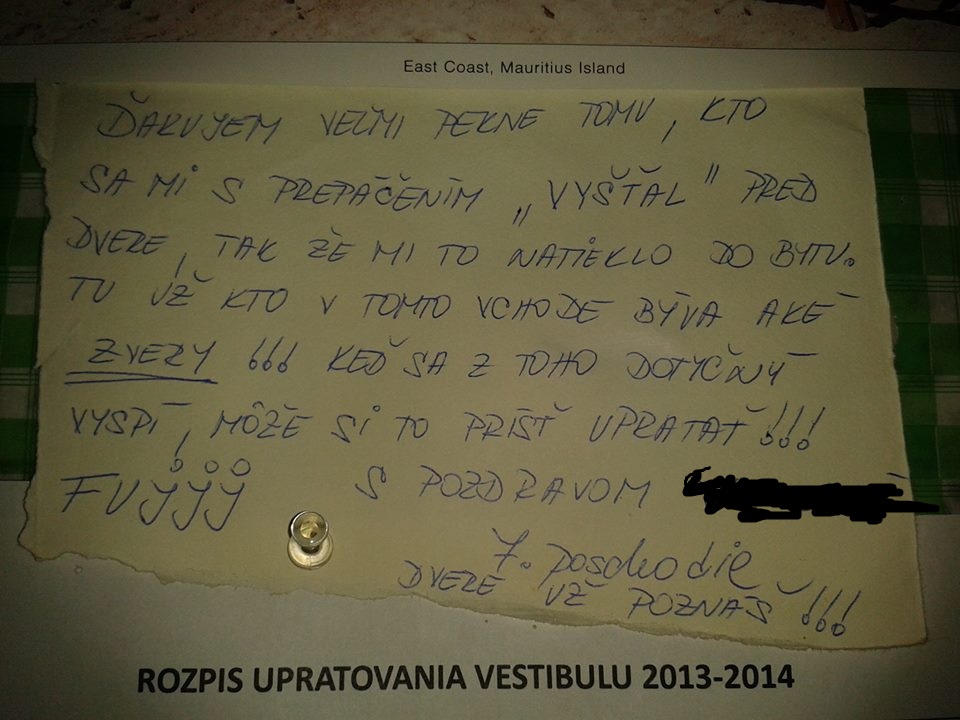 East Coast, Mauritius Island
ĎAKUJEM VEĽMI PEKNE TOMU, KTO
SA MI S PREPÁČENÍM „VYŠŤAL" PRED
DVERE, TAK ŽE MI TO NATIEKLO DO BYTU.
TU UŽ KTO V TOMTO VCHODE BÝVA AKÉ
ZVERY !!! KEĎ SA Z TOHO DOTYČNÝ
VYSPÍ, MÔŽE SI TO PRÍSŤ UPRATAŤ!!!
FUJJJ S POZDRAVOM
7. poschodie
DVERE UŽ POZNÁŠ!!!
ROZPIS UPRATOVANIA VESTIBULU 2013-2014